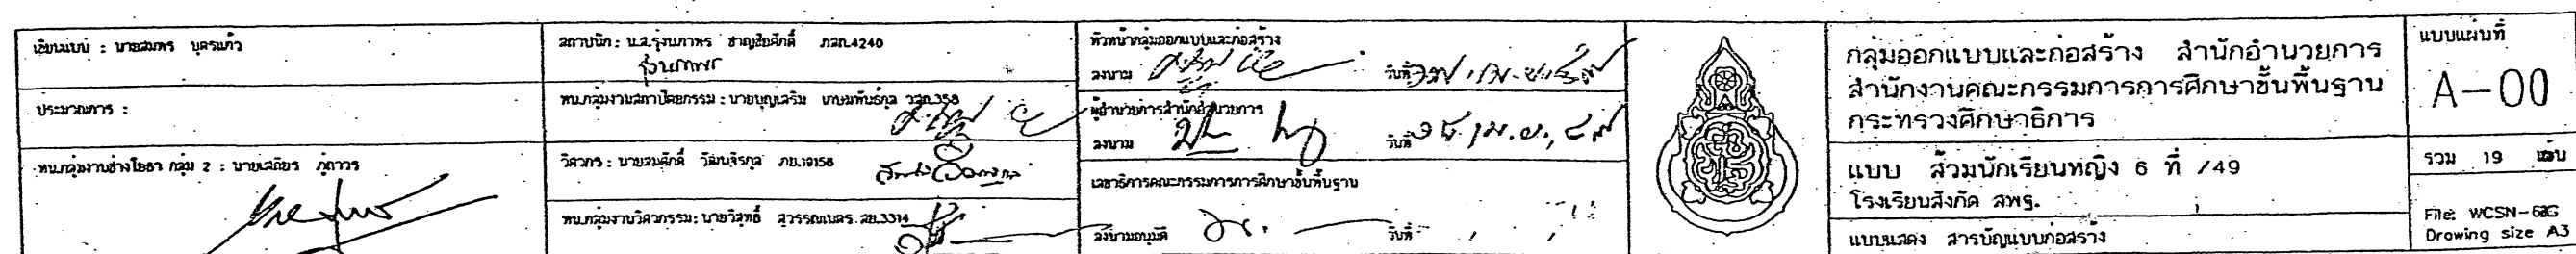 เขียนแบบ : นายสมพร บุตรแก้ว
ประมาณการ :
หน.กลุ่มงานช่างโยธา กลุ่ม 2 : นายเสถียร ภู่ถาวร
สถาปนิก : น.ส.รุ่งนภาพร ชาญชัยศักดิ์ ภสถ.4240
รุ่งนภาพร
หน.กลุ่มงานสถาปัตยกรรม : นายบุญเสริม เกษมพันธ์กุล วสถ.358
วิศวกร : นายสมศักดิ์ วัฒนจิรกุล ภย.19156
หน.กลุ่มงานวิศวกรรม : นายวิสุทธิ์ สุวรรณเนตร สย.3314
หัวหน้ากลุ่มออกแบบและก่อสร้าง
ลงนาม วันที่
ผู้อำนวยการสำนักอำนวยการ
ลงนาม วันที่
เลขาธิการคณะกรรมการการศึกษาขั้นพื้นฐาน
ลงนามอนุมัติ วันที่
กลุ่มออกแบบและก่อสร้าง สำนักอำนวยการ
สำนักงานคณะกรรมการการศึกษาขั้นพื้นฐาน
กระทรวงศึกษาธิการ
แบบ ส้วมนักเรียนหญิง 6 ที่ /49
โรงเรียนสังกัด สพฐ.
แบบแสดง สารบัญแบบก่อสร้าง
แบบแผ่นที่
A-00
รวม 19 แผ่น
File: WCSN-6
Drowing size A3